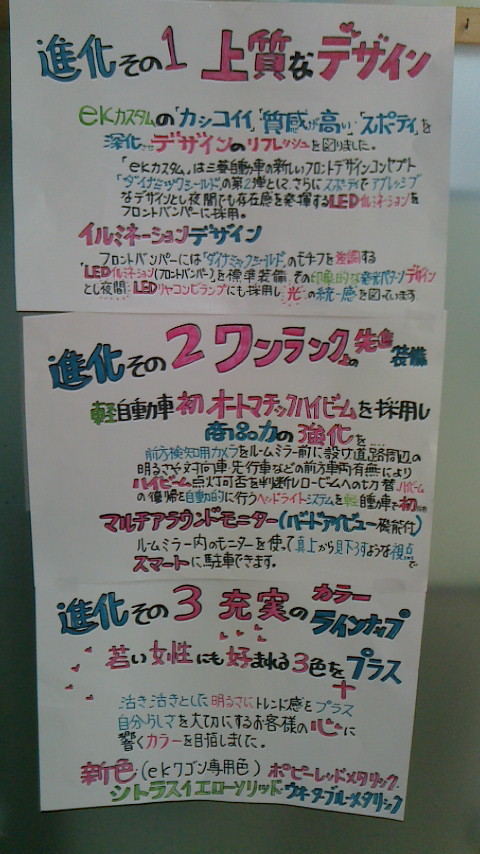 進化その1 上質なデザイン
ekカスタムの「カッコイイ」「質感が高い」「スポーティ」を
深化させデザインのリフレッシュを図りました。
「ekカスタム」は三菱自動車の新しいフロントデザインコンセプト
「ダイナミックシールド」の第2弾として、さらにスポーティでアグレッシブ
なデザインとし夜間でも存在感を発揮するLEDイルミネーションを
フロントバンパーに採用。
イルミネーションデザイン
フロントバンパーには「ダイナミックシールド」のモチーフを強調する
「LEDイルミネーション(フロントバンパー)」を標準装備、その印象的な発光パターンデザイン
とし夜間LEDリヤコンビランプにも採用し光の統一感を図っています
進化その2 ワンランク上の先進装備
軽自動車初オートマチックハイビームを採用し
商品力の強化を
前方検知用カメラをルームミラー前に設け道路周辺の
明るさや対向車、先行車などの前方車両有無により
ハイビーム点灯可否を判断しロービームへの切替、ハイビーム
の復帰を自動的に行うヘッドライトシステムを軽自動車で初
マルチアラウンドモニター(バードアイビュー機能付)
ルームミラー内のモニターを使って真上から見下ろすような視点で
スマートに駐車できます。
進化その3 充実のカラーラインナップ
若い女性にも好まれる3色をプラス
+
活き活きとした明るさにトレンド感をプラス
自分らしさを大切にするお客様の心に
響くカラーを目指しました。
新色(ekワゴン専用色) ポピーレッドメタリック・
シトラスイエローソリッド・ウォーターブルーメタリック